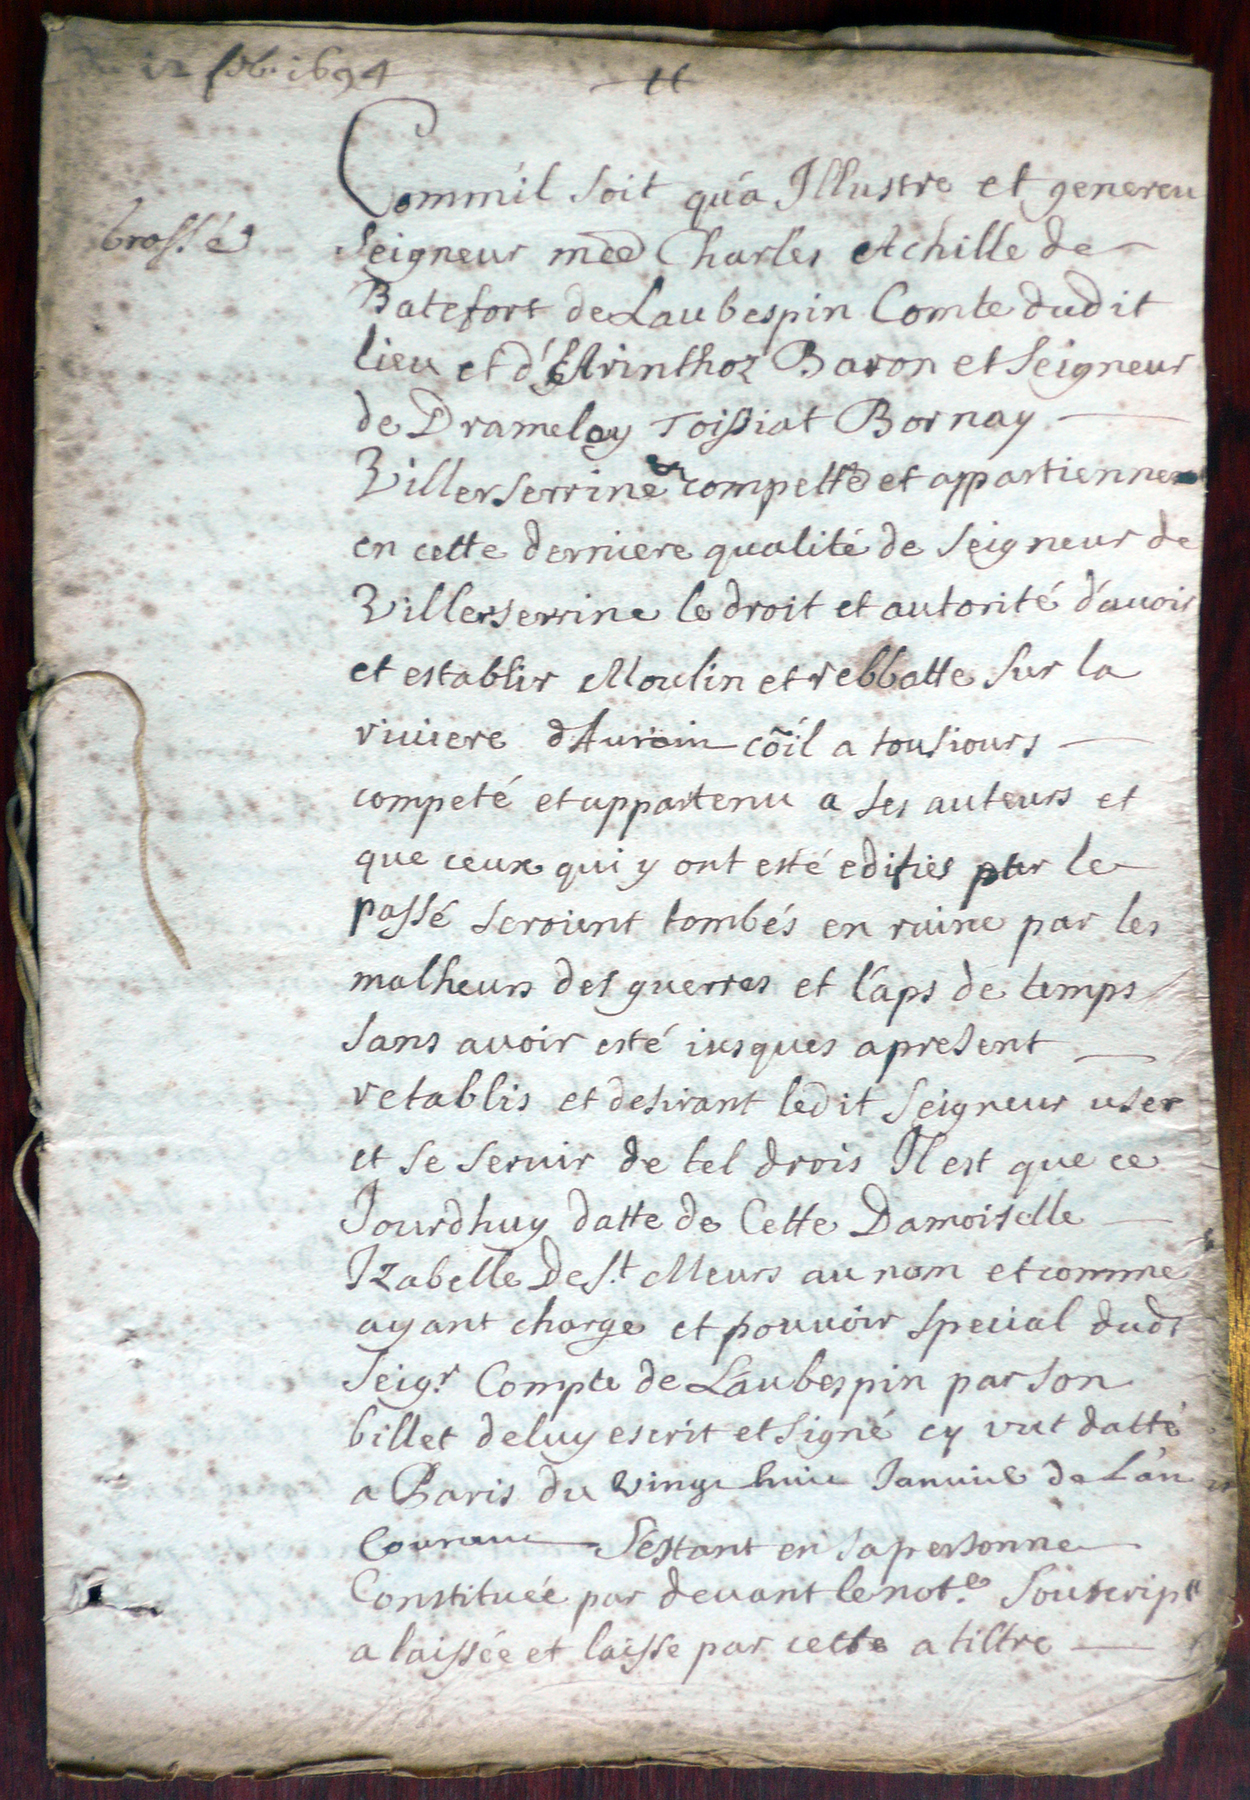 du 12 feb. 1694
Comm'il soit qu'a Illustre et genereu
brossé
Seigneur mre Charles Achille de
Batefort de Laubespin Comte dudit
lieu et d'Arinthoz Baron et Seigneur
de Dramelay Toissiat Bornay
Villerserrine & compette et appartienne
en cette derniere qualité de Seigneur de
Villerserrine le droit et autorité d'avoir
et establir Moulin et rebbatte sur la
riviere d'Aurain cõ'il a tousiours
competé et appartenu a ses auteurs et
que ceux qui y ont esté edifies par le
passé seroient tombés en ruine par les
malheurs des guerres et l'aps de temps
sans avoir esté iusques apresent
retablis et desirant ledit Seigneur user
et se servir de tel drois Il est que ce
Jourdhuy datte de Cette Damoiselle
Izabelle De St Meurs au nom et comme
ayant charge et pouvoir special dudt
Seigr Compte de L'aubespin par son
billet de luy escrit et signé cy vut datté
a Paris du vingt huit Janvier de L'an
Courant S'estant en sa personne
Constituée par devant le note souscript
a laissée et laisse par cette a tiltre